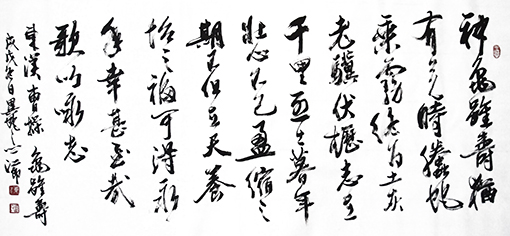 神龜雖壽猶
有竟時騰蛇
乘霧終為土灰
老驥伏櫪志在
千里烈士暮年
壯心不已盈縮之
期不但在天養
怡之福可得永
年幸甚至哉
歌以詠志
東漢曹操龜雖壽
戊戌冬日